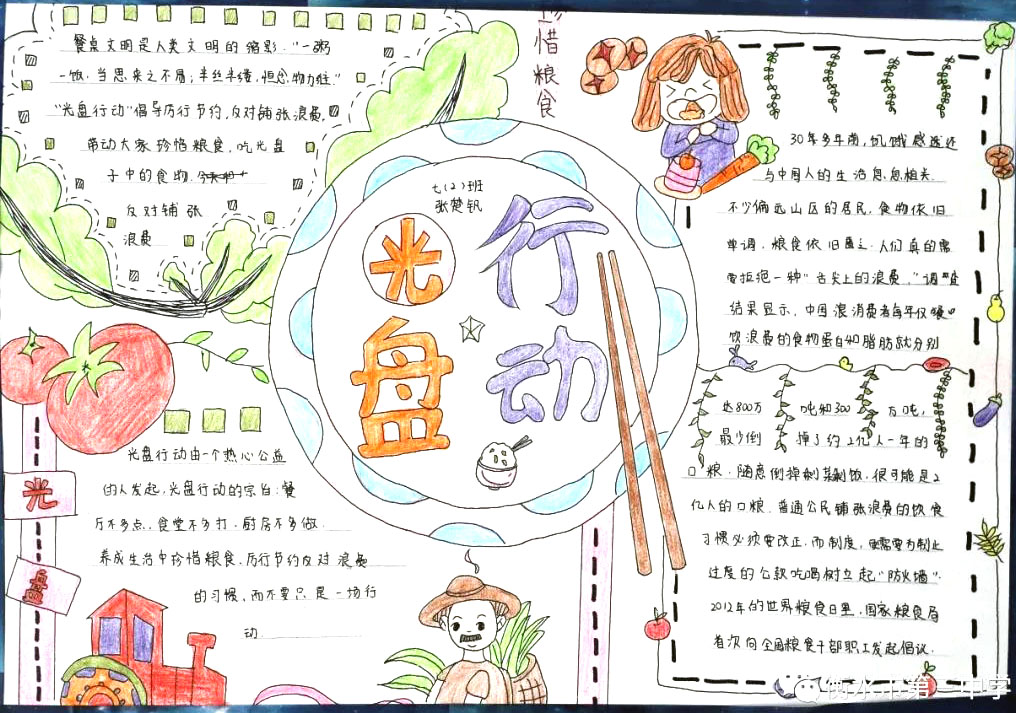 餐桌文明是人类文明的缩影."一粥
一饭,当思来之不易;半丝半缕,恒念物力维"
"光盘行动"倡导厉行节约,反对铺张浪费,
带动大家珍惜粮食,吃光盘
子中的食物.
反对铺张
浪费
珍惜粮食
七(2)班
张楚钒
光盘
行动
光盘行动由一个热心公益
的人发起,光盘行动的宗旨:餐
厅不多点,食堂不多打.厨房不多做.
养成生活中珍惜粮食,厉行节约反对浪费
的习惯,而不要只是一场行
动
光
盘
30年多年前,饥饿感遥还
与中国人的生活息息相关.
不少偏远山区的居民,食物依旧
单调,粮食依旧匮乏.人们真的需
要拒绝一种"舌尖上的浪费."调查
结果显示,中国浪消费者每年仅餐
饮浪费的食物蛋白和脂肪就分别
达800万吨和300万吨,
最少倒掉了约2亿人一年的
口粮.随意倒掉剩菜剩饭.很可能是2
亿人的口粮.普通公民铺张浪费的饮食
习惯必须要改正.而制度,更需要为制止
过度的公款吃喝树立起"防火墙".
2012年的世界粮食日里,国家粮食局
首次向全国粮食干部职工发起倡议.
衡水市第三中学